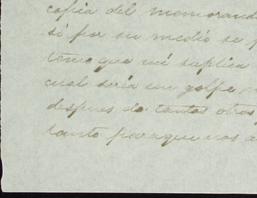 copia del memorand
si por su medio se p
temo que mi suplica
cual sería un golpe
despues de tantos otros
tanto para que nos a